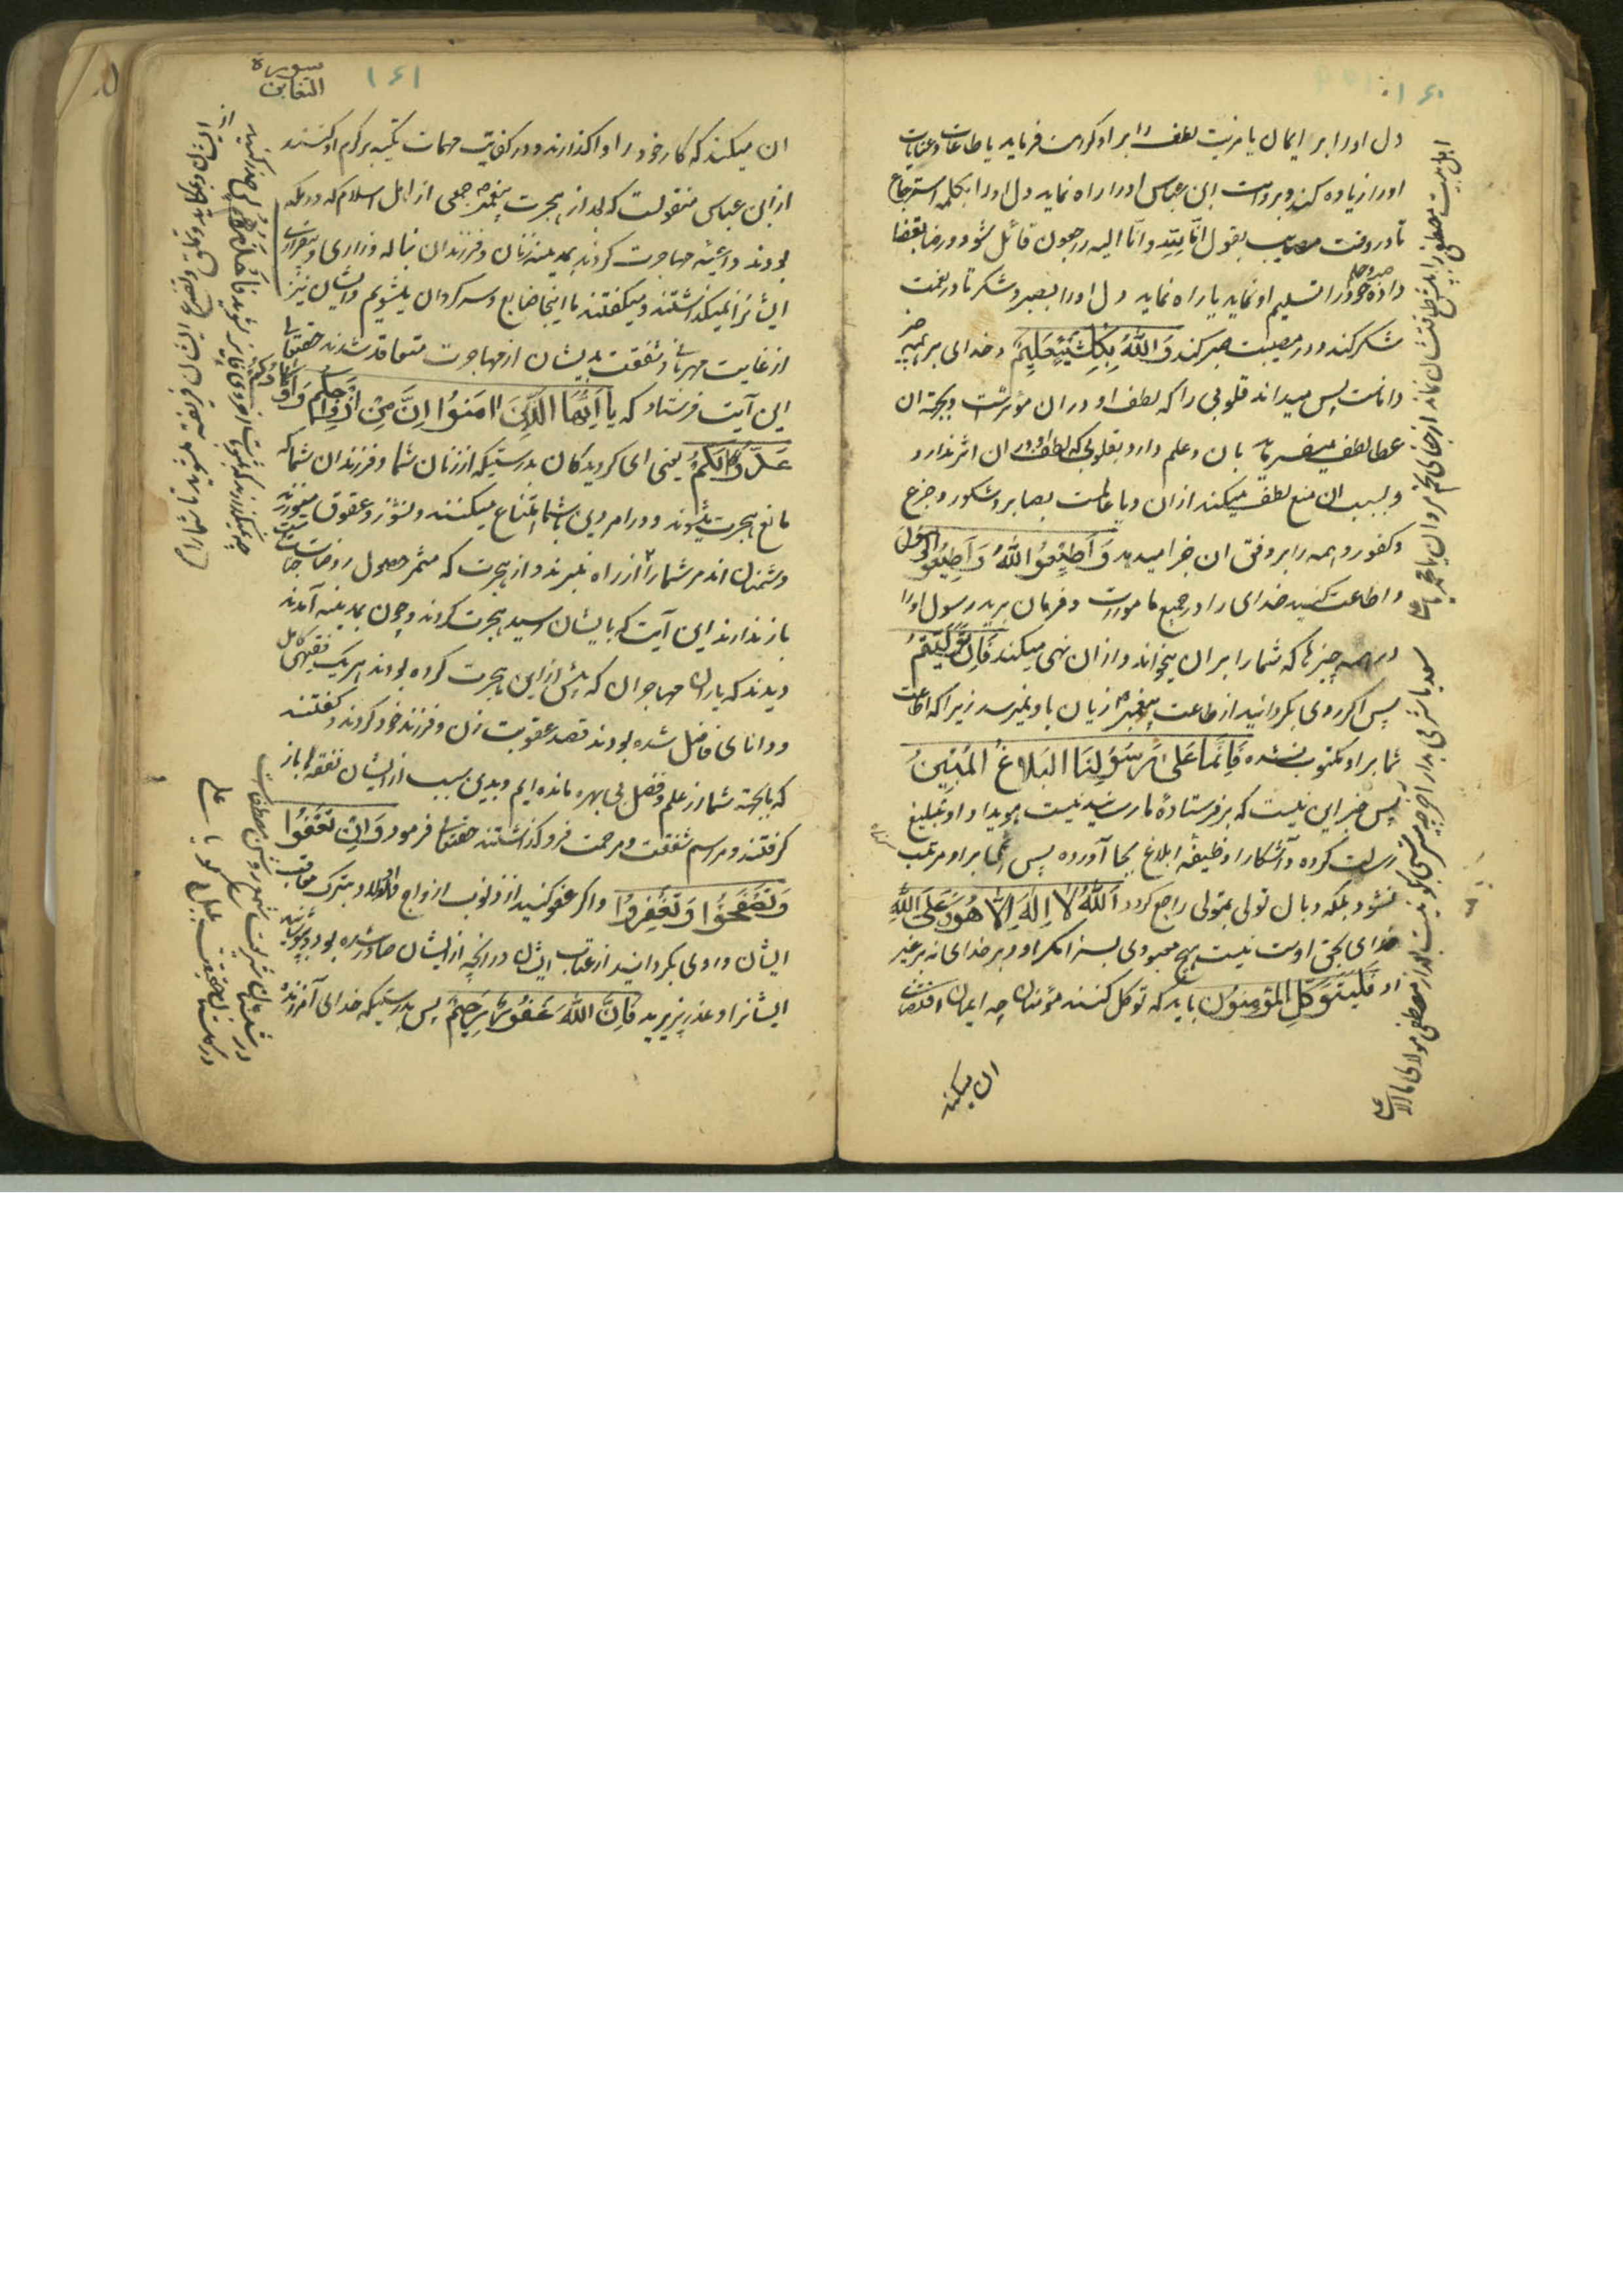 ۱۶۰
دل او را بر ایمان یا مزیت لطف را بر او کرامت فرماید یا طاعات و عنایات
او را زیاده کند و بروایت ابن عباس او را راه نماید دل او را بکلمه استرجاع
تا در وقت مصایب بقول انا لله و انا الیه راجعون قائل شود و رضا بقضا
داده خود را تسلیم او نماید یا راه نماید دل او را بصبر و شکر تا در نعمت
شکر کند و در مصیبت صبر کند وَاللّٰهُ بِكُلِّ شَيْءٍ عَلِيمٌ و خدای بر همه چیز
داناست پس میداند قلوبی را که لطف او در ان مؤثرست و بجهة ان
عطا لطف میفرماید بان و علم دارد بقلوبی که لطف او در ان اثر ندارد
و بسبب ان منع لطف میکند از ان و یا عالمست بصابر و شکور و جزع
و کفور و همه را بر وفق ان جزا میدهد وَاَطِيعُوا اللّٰهَ وَاَطِيعُوا الرَّسُولَ
و اطاعت کنید خدای را در جمیع مامورات و فرمان برید رسول او را
در همه چیزها که شما را بر ان میخواند و از ان نهی میکند فَاِنْ تَوَلَّيْتُمْ
پس اگر روی بگردانید از طاعت پیغمبر زیان باو نمیرسد زیرا که اطاعت
شما بر او مکتوب نشده فَاِنَّمَا عَلٰى رَسُولِنَا الْبَلَاغُ الْمُبِينُ
پس جز این نیست که بر فرستادهٔ ما رسانیدنیست هویدا و او تبلیغ
رسالت کرده و آشکارا وظیفه ابلاغ بجا آورده پس بر او مرتب
نشود بلکه وبال تولی بمتولی راجع گردد اَللّٰهُ لَا اِلٰهَ اِلَّا هُوَ وَعَلَى اللّٰهِ
خدای بحق اوست نیست هیچ معبودی بسزا مگر او و بر خدای نه بر غیر
او فَلْيَتَوَكَّلِ الْمُؤْمِنُونَ باید که توکل کنند مؤمنان چه ایمان اقتضای
ان میکند
سورة التغابن
۱۶۱
ان میکند که کار خود را باو واگذارند و در کفایت مهمات تکیه بر کرم او کنند
از ابن عباس منقولست که بعد از هجرت پیغمبر جمعی از اهل اسلام که در مکه
بودند داعیه مهاجرت کردند بمدینه زنان و فرزندان بناله و زاری و بیقراری
ایشانرا نمیگذاشتند و میگفتند ما اینجا ضایع و سرگردان میشویم و ایشان نیز
از غایت مهربانی و شفقت بدیشان از مهاجرت متقاعد شدند حقتعالی
این آیت فرستاد که يَا اَيُّهَا الَّذِينَ اٰمَنُوا اِنَّ مِنْ اَزْوَاجِكُمْ وَاَوْلَادِكُمْ
عَدُوًّا لَكُمْ یعنی ای گرویدگان بدرستیکه از زنان شما و فرزندان شما که
مانع هجرت میشوند و در امر دین با شما امتناع میکنند و نشوز و عقوق میورزند
دشمنان اند مر شما را تا از راه نبرند و از هجرت که مثمر حصول روضات جنات
باز ندارند این آیت که بایشان رسید هجرت کردند و چون بمدینه آمدند
دیدند که یاران مهاجران که پیش از این هجرت کرده بودند هر یک فقیهی کامل
و دانای فاضل شده بودند قصد عقوبت زن و فرزند خود کردند و گفتند
که ما بجهة شما از علم و فضل بی بهره مانده ایم و بدین سبب از ایشان نفقه را باز
گرفتند و مراسم شفقت و مرحمت فرو گذاشتند حقتعالی فرمود وَاِنْ تَعْفُوا
وَتَصْفَحُوا وَتَغْفِرُوا و اگر عفو کنید از ذنوب ازواج و اولاد و بترک معاقبت
ایشان و روی بگردانید از عتاب ایشان در انچه از ایشان صادر شده بود و بپوشانید
ایشانرا و عذر پذیرید فَاِنَّ اللّٰهَ غَفُورٌ رَحِيمٌ پس بدرستیکه خدای آمرزنده